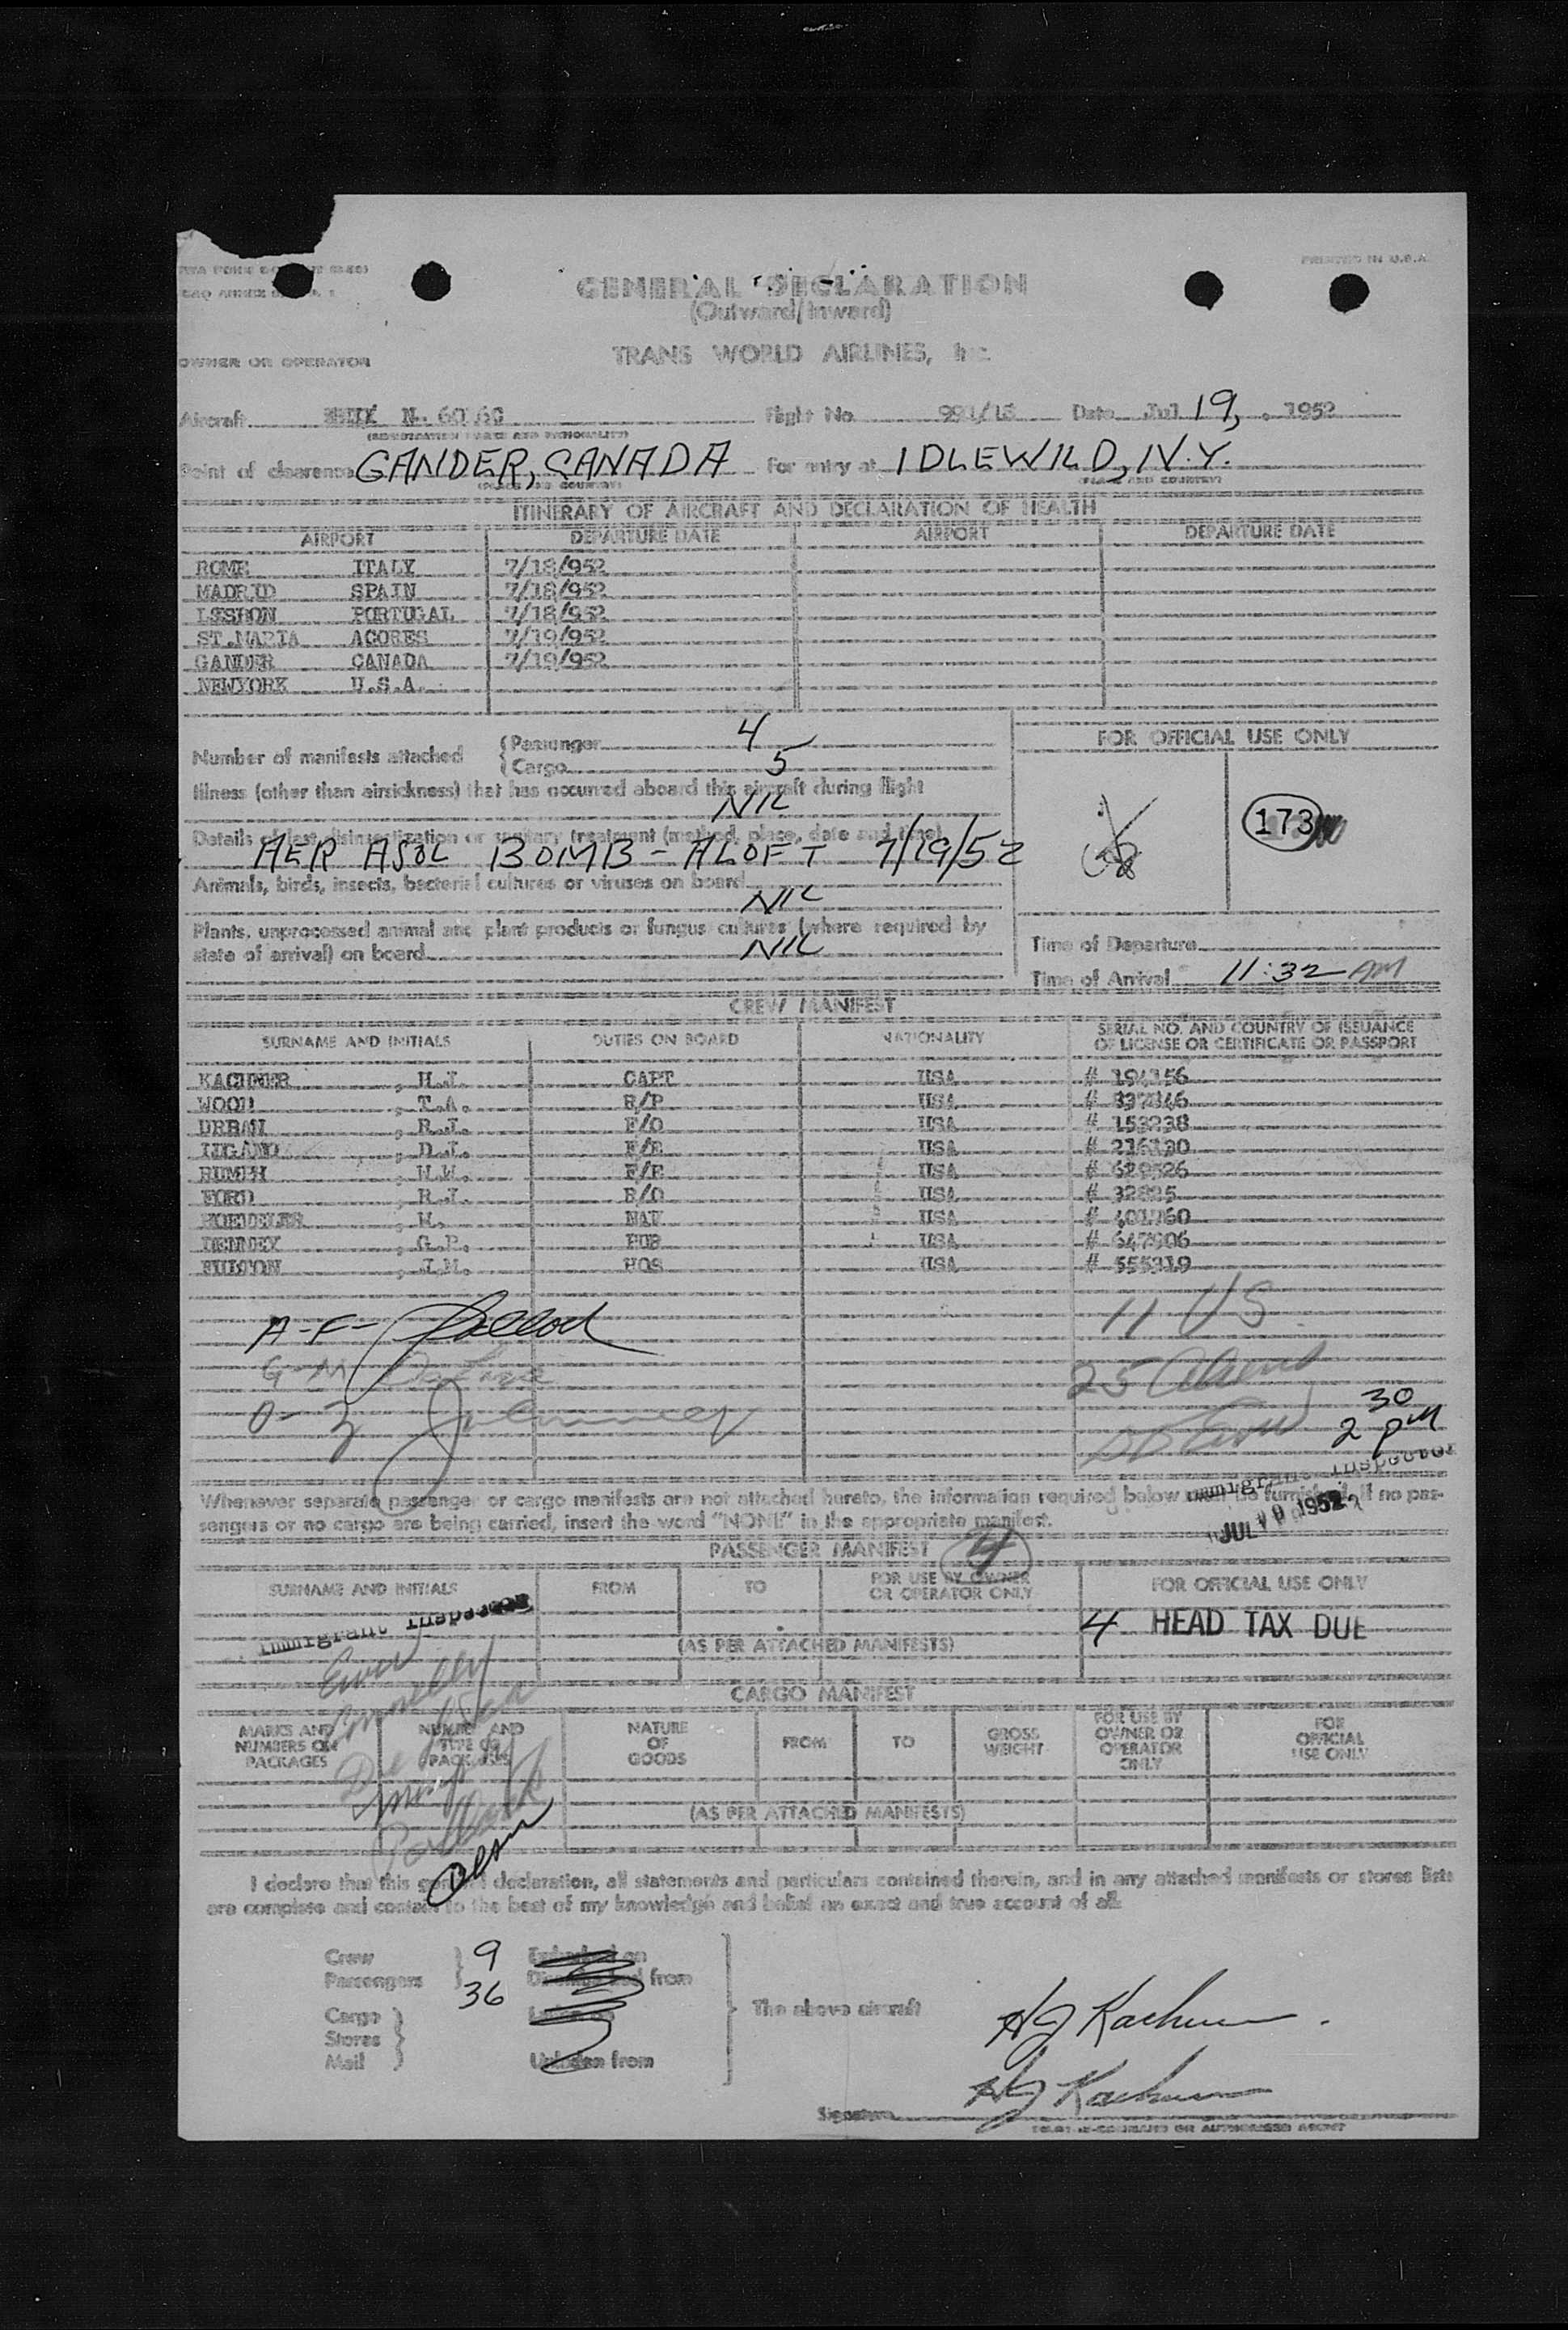 PRINTED IN U.S.A.
GENERAL DECLARATION
(Outward/Inward)
OWNER OR OPERATOR
TRANS WORLD AIRLINES, Inc.
Aircraft N- Flight No. Date Jul 19, 1952
Point of clearence GANDER, CANADA For entry at IDLEWILD, N.Y.
(PLACE AND COUNTRY) (PLACE AND COUNTRY)
ITINERARY OF AIRCRAFT AND DECLARATION OF HEALTH
AIRPORT DEPARTURE DATE AIRPORT DEPARTURE DATE
ROME ITALY 7/18/952
MADRID SPAIN 7/18/952
LISBON PORTUGAL 7/18/952
ST.MARIA ACORES 7/19/952
GANDER CANADA 7/19/952
NEWYORK U.S.A.
Number of manifests attached { Passenger 4
Cargo 5
FOR OFFICIAL USE ONLY
Illness (other than airsickness) that has occurred aboard this aircraft during flight
NIL
173
Details of last disinsectization or sanitary treatment (method, place, date and time)
AER ASOL BOMB - ALOFT 7/19/52
Animals, birds, insects, bacterial cultures or viruses on board
NIL
Plants, unprocessed animal and plant products or fungus cultures (where required by
state of arrival) on board NIL
Time of Departure
Time of Arrival 11:32 AM
CREW MANIFEST
SURNAME AND INITIALS DUTIES ON BOARD NATIONALITY SERIAL NO. AND COUNTRY OF ISSUANCE
OF LICENSE OR CERTIFICATE OR PASSPORT
KACHNER , H.J. CAPT USA # 194156
WOOD , T.A. R/P USA #
URBAN , R.J. F/O USA # 153238
, D.J. F/E USA #
, W.W. F/E USA # 629526
FORD , R.J. R/O USA #
, W. NAV USA #
DENNEY , G.P. PUR USA #
FULTON , J.M. HOS USA # 555319
11 US
A-F-
G-M
25 Aliens
O-Z
30
2 PM
Immigrant Inspector
Whenever separate passenger or cargo manifests are not attached hereto, the information required below must be furnished. If no pas-
sengers or no cargo are being carried, insert the word "NONE" in the appropriate manifest.
JUL 19 1952
PASSENGER MANIFEST 4
SURNAME AND INITIALS FROM TO FOR USE BY OWNER
OR OPERATOR ONLY FOR OFFICIAL USE ONLY
Immigrant Inspector
4 HEAD TAX DUE
(AS PER ATTACHED MANIFESTS)
CARGO MANIFEST
MARKS AND
NUMBERS ON
PACKAGES
NUMBER AND
TYPE OF
PACKAGES
NATURE
OF
GOODS
FROM
TO
GROSS
WEIGHT
FOR USE BY
OWNER OR
OPERATOR
ONLY
FOR
OFFICIAL
USE ONLY
(AS PER ATTACHED MANIFESTS)
Olsen
I declare that this general declaration, all statements and particulars contained therein, and in any attached manifests or stores lists
are complete and contain to the best of my knowledge and belief an exact and true account of all
Crew 9
Passengers 36 from
Cargo
Stores
Mail
Unladen from
The above aircraft
HJ Kachner
HJ Kachner
Signature